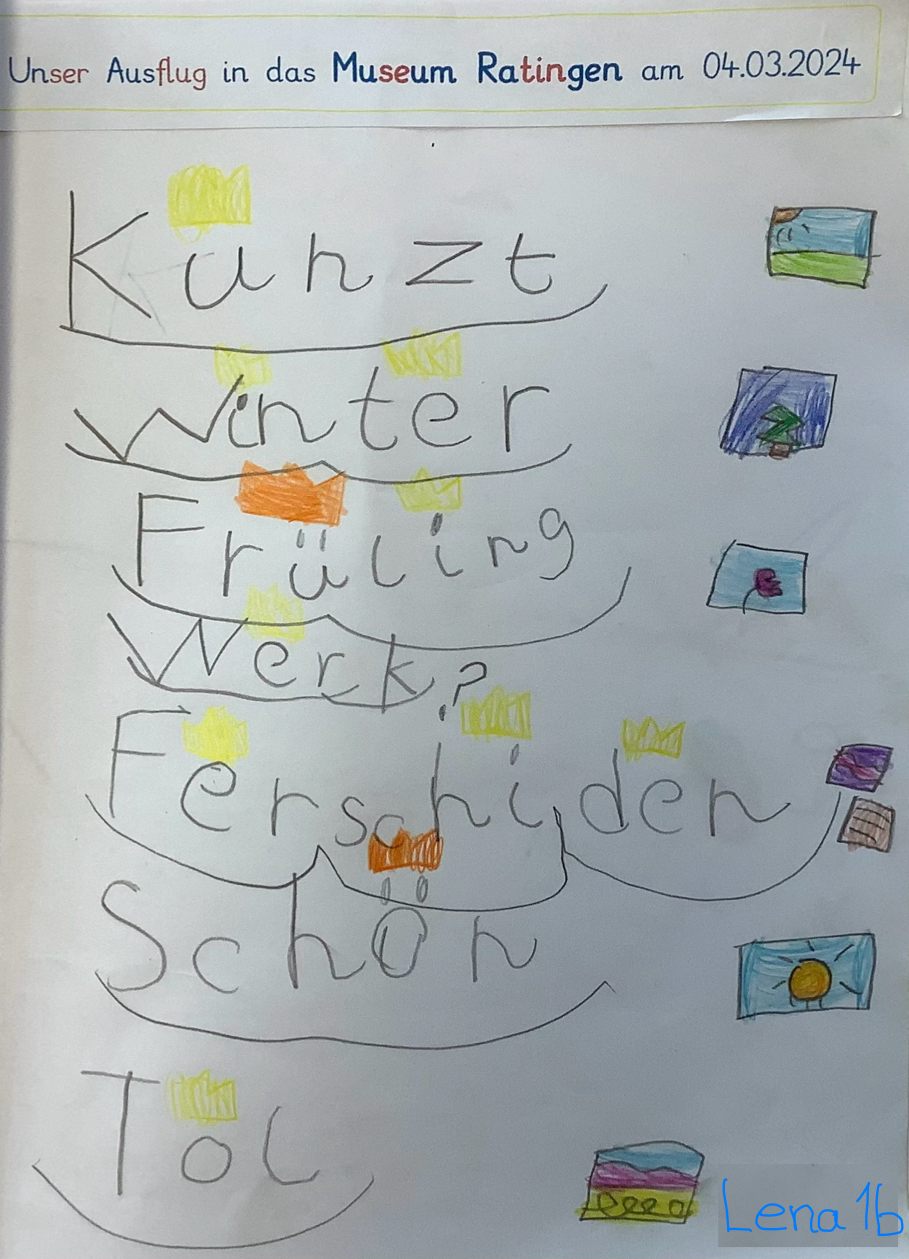 Unser Ausflug in das Museum Ratingen am 04.03.2024
Kunzt
Winter
Früling
Werk?
Ferschiden
Schön
Tol
Lena 1b